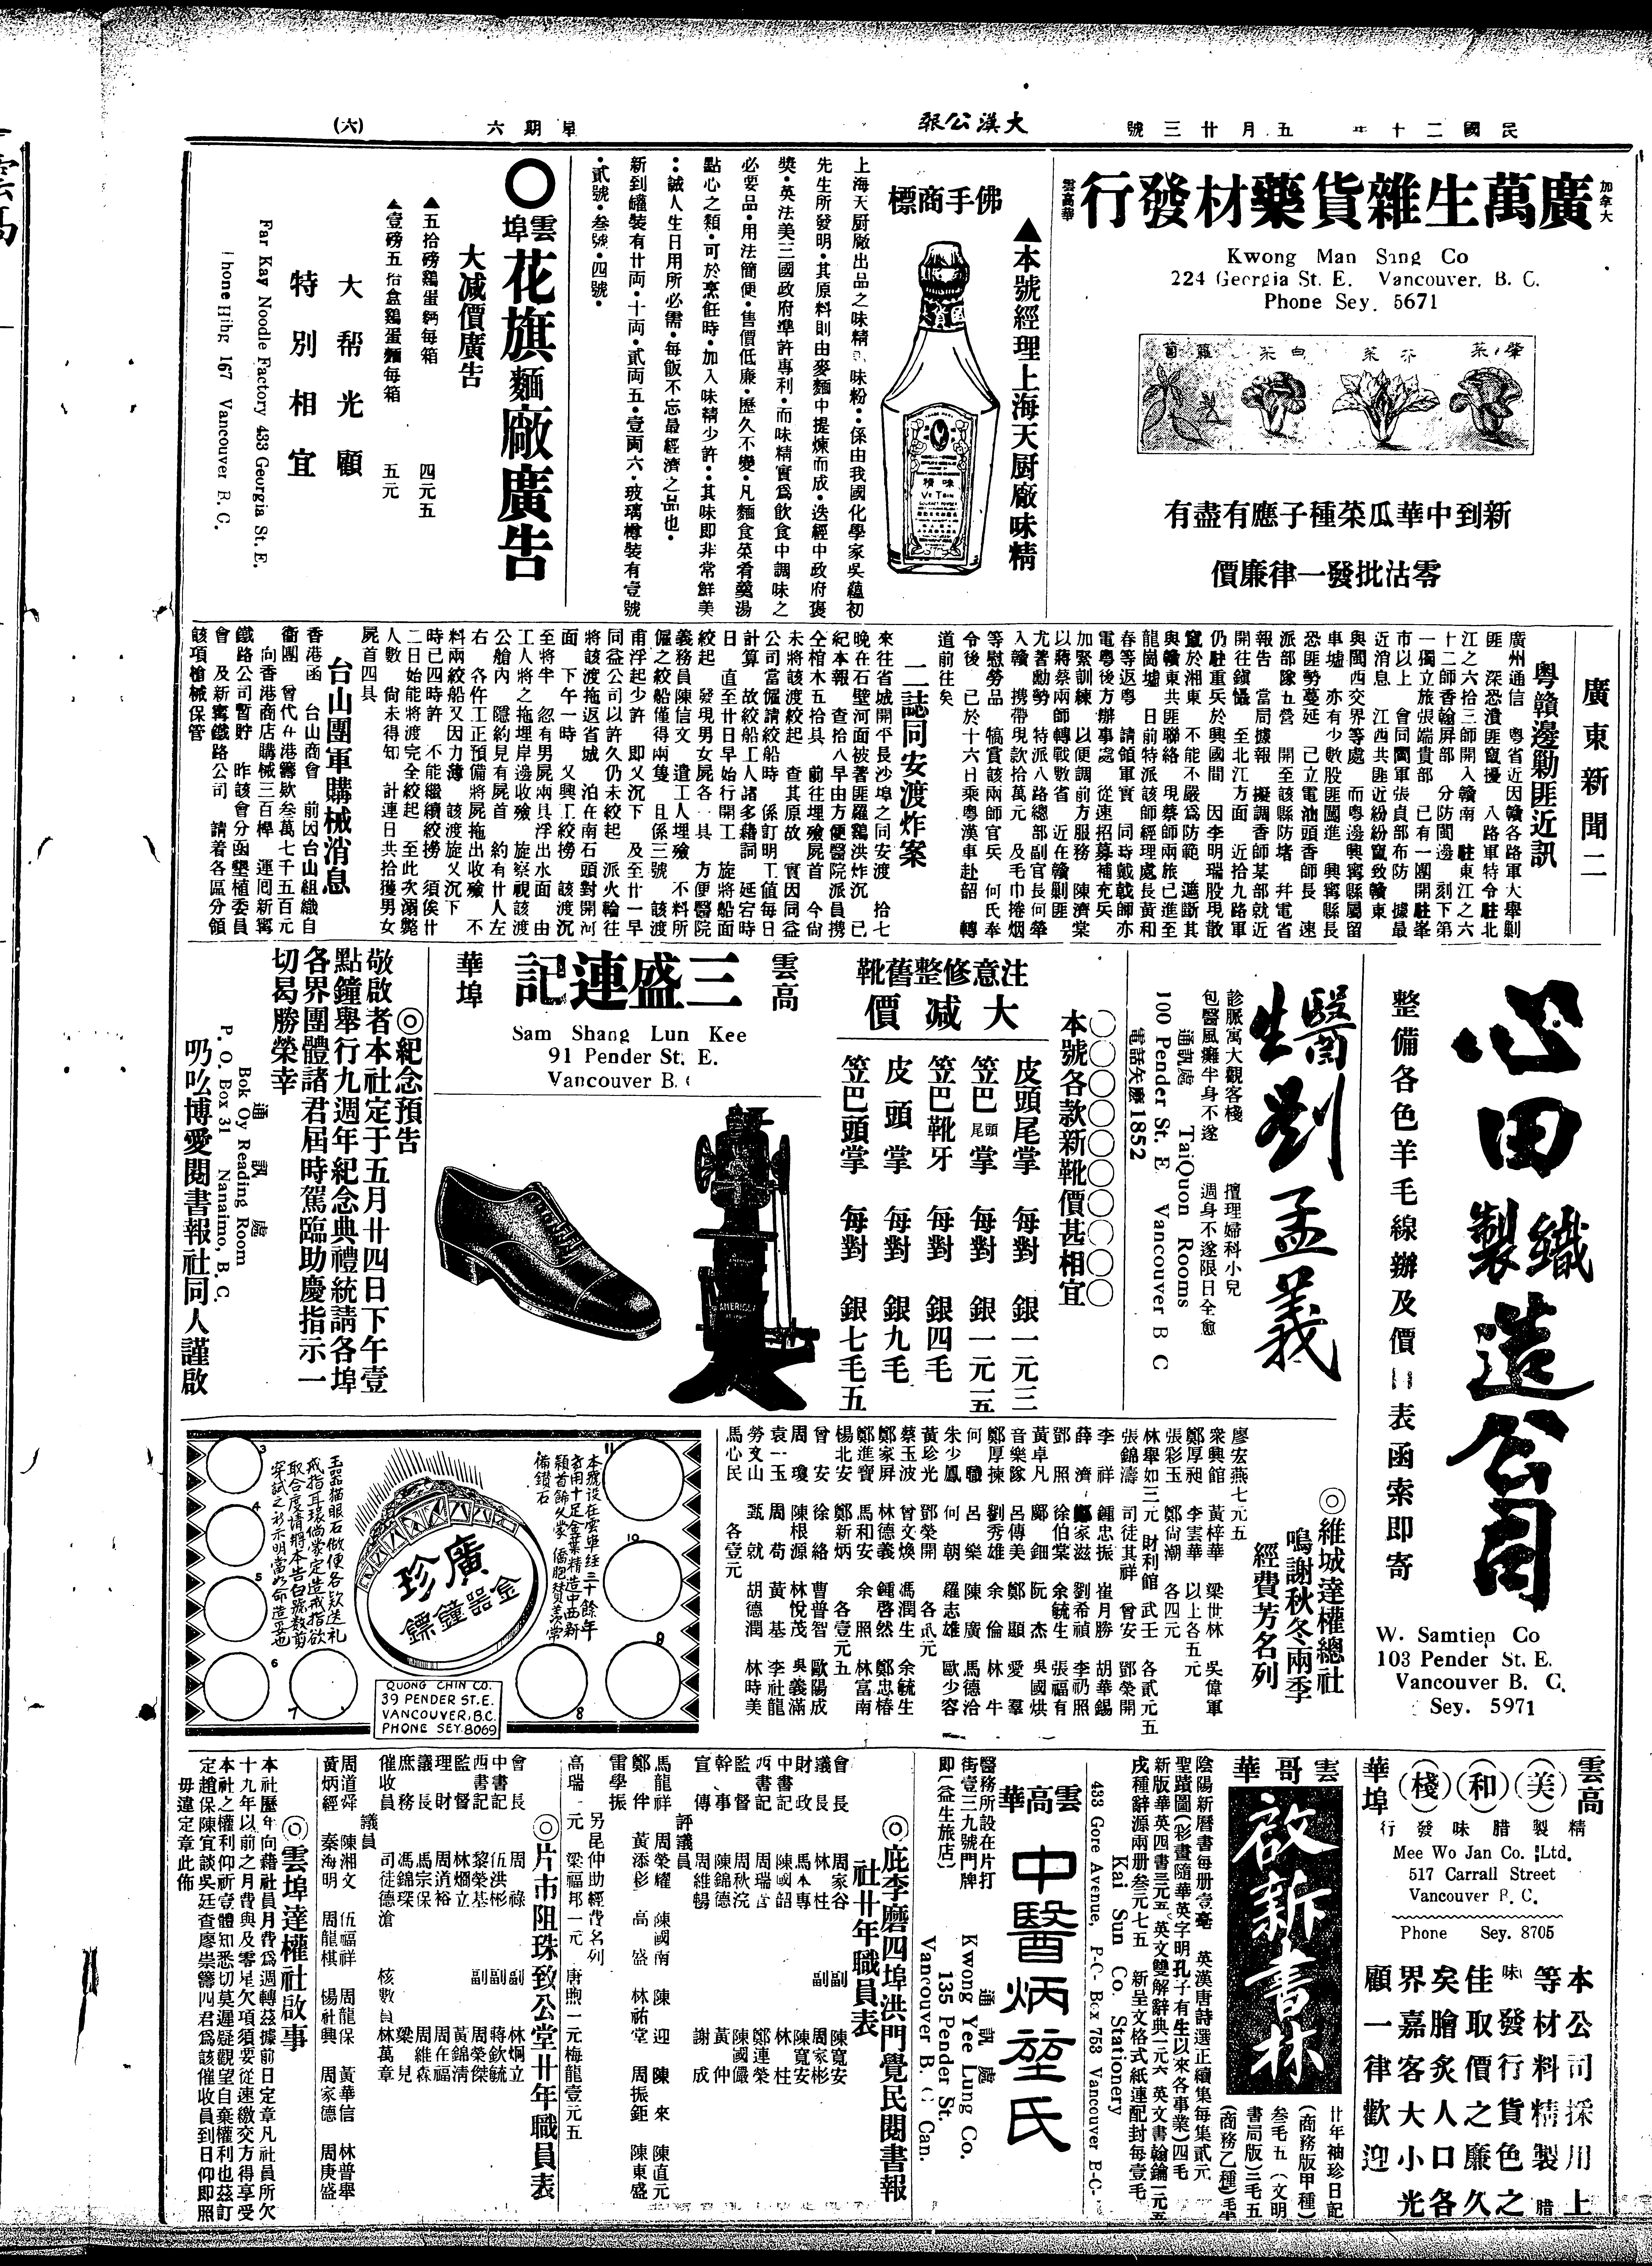 民國二十年 五月廿三號
大漢公報
星期六
(六)
加拿大
雲高華
廣萬生雜貨藥材發行
Kwong Man Sang Co
224 Georgia St. E. Vancouver, B. C.
Phone Sey. 5671
新到中華瓜菜種子應有盡有
零沽批發一律廉價
▲本號經理上海天厨廠味精
佛手商標
味精
VE TSIN
先生所發明•其原料則由麥麵中提煉而成•迭經中政府褒
獎•英法美三國政府準許專利•而味精實爲飲食中調味之
必要品•用法簡便•售價低廉•歷久不變•凡麵食菜肴羹湯
點心之類•可於烹飪時•加入味精少許•其味即非常鮮美
•誠人生日用所必需•每飯不忘最經濟之品也•
新到罐裝有廿両•十両•貳両五•壹両六•玻璃樽裝有壹號
•貳號•叁號•四號•
〇雲埠花旗麵廠廣告
大減價廣告
▲五拾磅鷄蛋麵每箱 四元五
▲壹磅五拾盒鷄蛋麵每箱 五元
大帮光顧
特別相宜
Far Kay Noodle Factory 433 Georgia St. E.
Phone Hihg 167 Vancouver B. C.
廣東新聞二
粤贛邊剿匪近訊
廣州通信 粤省近因贛各路軍大舉剿
匪 深恐潰匪竄擾 八路軍特令駐北
江之六拾三師開入贛南 駐東江之六
十二師香翰屏部 分防閩邊 刻下第
一獨立旅張端貴部 已有一團開駐峯
市以上 會同閩軍張貞部布防 據最
近消息 江西共匪近紛紛竄致贛東
與閩西交界等處 而粤邊興寗縣屬留
車墟 亦有少數股匪闖進 興寗縣長
恐匪勢蔓延 已立電汕頭香師長 速
派部隊五營 開至該縣防堵 幷電省
報告 當局據報 擬調香師某部就近
開往鎮懾 至北江方面 近拾九路軍
仍駐重兵於興國間 因李明瑞股現散
竄於湘東 不能不嚴爲防範 遮斷其
與贛東共匪聯絡 現蔡師兩旅已進至
龍崗墟 日前特派該師經理處長黃和
春等返粤 請領軍實 同時戴戟師亦
電粤後方辦事處 從速招募補充兵
加緊訓練 以便調前方服務 陳濟棠
以蔣蔡兩師轉戰數省 近在贛剿匪
尤著勳勞 特派八路總部副官長何犖
入贛 携帶現欵拾萬元 及毛巾捲烟
等慰勞品 犒賞該兩師官兵 何氏奉
令後 已於十六日乘粤漢車赴韶 轉
道前往矣
二誌同安渡炸案
來往省城開平長沙埠之同安渡 拾七
晚在石壁河面被著匪羅鷄洪炸沉 已
紀本報 查拾八早由方便醫院派員携
仝棺木五拾具 前往埋殮屍首 今尙
未將該渡絞起 查其原故 實因同益
公司當僱請絞船時 係訂明工值每日
計算 故絞船工人諸多藉詞 延宕時
日 直至廿日早始行開工 旋將船面
絞起 發現男女屍各一具 方便醫院
義務員陳信文 遣工人埋殮 不料所
僱之絞船僅得兩隻 且係三號 該渡
甫浮起少許 即又沉下 及至廿一早
同益公司以許久仍未絞起 派火輪往
將該渡拖返省城 泊在南石頭對開河
面 下午一時 又興工絞撈 該渡沉
至將半 忽有男屍兩具浮出水面 由
工人將之拖埋岸邊收殮 旋察視該渡
公艙內 隱約見有屍首 約有廿人左
右 各仵工正預備將屍拖出收殮 不
料兩絞船又因力薄 該渡旋又沉下
時已四時許 不能繼續絞撈 須俟廿
二日始能將渡完全絞起 至此次溺斃
人數 尙未得知 計連日共拾獲男女
屍首四具
台山團軍購械消息
香港函 台山商會 前因台山組織自
衞團 曾代在港籌欵叁萬七千五百元
向香港商店購械三百桿 運囘新寗
鐵路公司暫貯 昨該會分函墾植委員
會 及新寗鐵路公司 請着各區分領
該項槍械保管
心田織製造公司
整備各色羊毛線辦及價目表函索即寄
W. Samtien Co
103 Pender St. E.
Vancouver B. C.
Sey. 5971
醫生劉孟義
診脈寓大觀客棧 擅理婦科小兒
包醫風癱半身不遂 週身不遂限日全愈
通訊處 TaiQuon Rooms
100 Pender St. E Vancouver B C
電話矢麽1852
本號各欵新靴價甚相宜
注意修整舊靴
大減價
皮頭尾掌 每對 銀一元三
笠巴頭尾掌 每對 銀一元一五
笠巴靴牙 每對 銀四毛
皮頭掌 每對 銀九毛
笠巴頭掌 每對 銀七毛五
雲高華埠
三盛連記
Sam Shang Lun Kee
91 Pender St. E.
Vancouver B.
◎紀念預告
敬啟者本社定于五月廿四日下午壹
點鐘舉行九週年紀念典禮統請各埠
各界團體諸君屆時駕臨助慶指示一
切曷勝榮幸
通訊處
Bok Oy Reading Room
P. O. Box 31 Nanaimo, B. C.
乃吆博愛閱書報社同人謹啟
◎維城達權總社
鳴謝秋冬兩季
經費芳名列
廖宏燕七元五
衆興館 黃梓華 梁世林 吳偉軍
鄭厚昶 李雲華 以上各五元
張彩玉 鄭尙潮 各四元
林舉如三元 財利館 武壬 各貳元五
張錦濤 司徒其祥 曾安 鄧榮開
李祥 鍾忠振 崔月勝 胡華錫
薛濟 鄭家滋 劉希禎 李礽照
鄧照 徐伯棠 余毓生 張福有
黃卓凡 鄺鈿 阮杰 吳國烘
音樂隊 呂傳美 鄭顯 愛羣
鄭厚揀 劉秀雄 余倫 林牛
何職 呂樂 陳廣 馬德洽
朱少鳳 何朝 羅志雄 歐少容
黃珍光 鄧榮開 各貳元
蔡玉波 曾文煥 馮潤生 余毓生
鄭家屏 林德義 鍾啓然 鄭忠椿
鄭進寶 馬和安 余照 林富南
楊北安 鄭新炳 各壹元五
曾安 徐絡 曹普智 歐陽成
周瓊 陳根源 林悅茂 吳義滿
袁一玉 周苟 黃基 李社龍
勞文山 甄就 胡德潤 林時美
馬心民 各壹元
廣珍
金器鐘鏢
本號設在雲寗經三十餘年
玉器猫眼石做便各欵送礼
戒指耳環倘蒙定造戒指欲
QUONG CHIN CO.
39 PENDER ST. E.
VANCOUVER, B.C.
PHONE SEY. 8069
雲高華埠
(美)(和)(棧)
精製腊味發行
Mee Wo Jan Co. Ltd.
517 Carrall Street
Vancouver B. C.
Phone Sey. 8705
本公司採川上
等材料精製腊
味發行貨色之
佳取價之廉久
矣膾炙人口各
界嘉客大小光
顧一律歡迎
雲哥華
啟新書林
廿年袖珍日記
(商務版甲種)
叁毛五 (文明
書局版)三毛五
陰陽新曆書每册壹毫 英漢唐詩選正續集每集貳元
聖蹟圖(彩畫隨華英字明孔子有生以來各事業)四毛
新版華英四書三元五 英文雙解辭典二元六 英文書翰鑰一元五
戌種辭源兩册叁元七五 新呈文格式紙連配封每壹毛
Kai Sun Co. Stationery
433 Gore Avenue, P-C- Box 758 Vancouver B-C-
雲高華
中醫炳堃氏
醫務所設在片打
街壹三九號門牌
即(益生旅店)
通訊處
Kwong Yee Lung Co.
135 Pender St.
Vancouver B. C. Can.
◎庇李磨四埠洪門覺民閱書報
社廿年職員表
會長 周家谷 副 陳寬安
議長 林柱 副 周家彬
財政 馬本專 陳寬安
中書記 陳國韶 林柱
西書記 周瑞官 鄭連榮
監督 周秋浣 陳國儼
幹事 陳錦德 黃仲
宣傳 周維暢 謝成
評議員
馬龍祥 周榮耀 陳國南 陳迎 陳來 陳直元
鄭伴 黃添彰 高盛 林祐堂 周振鉅 陳東盛
雷學振
另昆仲助經費名列
高瑞一元 梁福邦一元 唐煦一元 梅龍壹元五
◎片市阻珠致公堂廿年職員表
會長 周祿 副 林炯立
中書記 伍洪彬 副 蔣欽毓
西書記 黎榮基 副 周榮傑
監督 林燗立 黃錦清
理財 周道裕 周在福
議長 馬宗保 周維森
庶務 馮錦琛 梁兒
催收員 司徒德滄 核數員 林萬章
議員
周道舜 陳湘文 伍福祥 周龍保 黃華信 林普舉
黃炳經 秦海明 周龍棋 楊社興 周家德 周庚盛
◎雲埠達權社啟事
本社歷年向藉社員月費爲週轉茲據前日定章凡社員所欠
十九年以前之月費與及零星欠項須要從速繳交方得享受
本社之權利仰祈壹體知悉切莫遲疑觀望自棄權利也茲訂
定趙保陳宜談吳廷查廖崇籌四君爲該催收員到日仰即照
毋違定章此佈